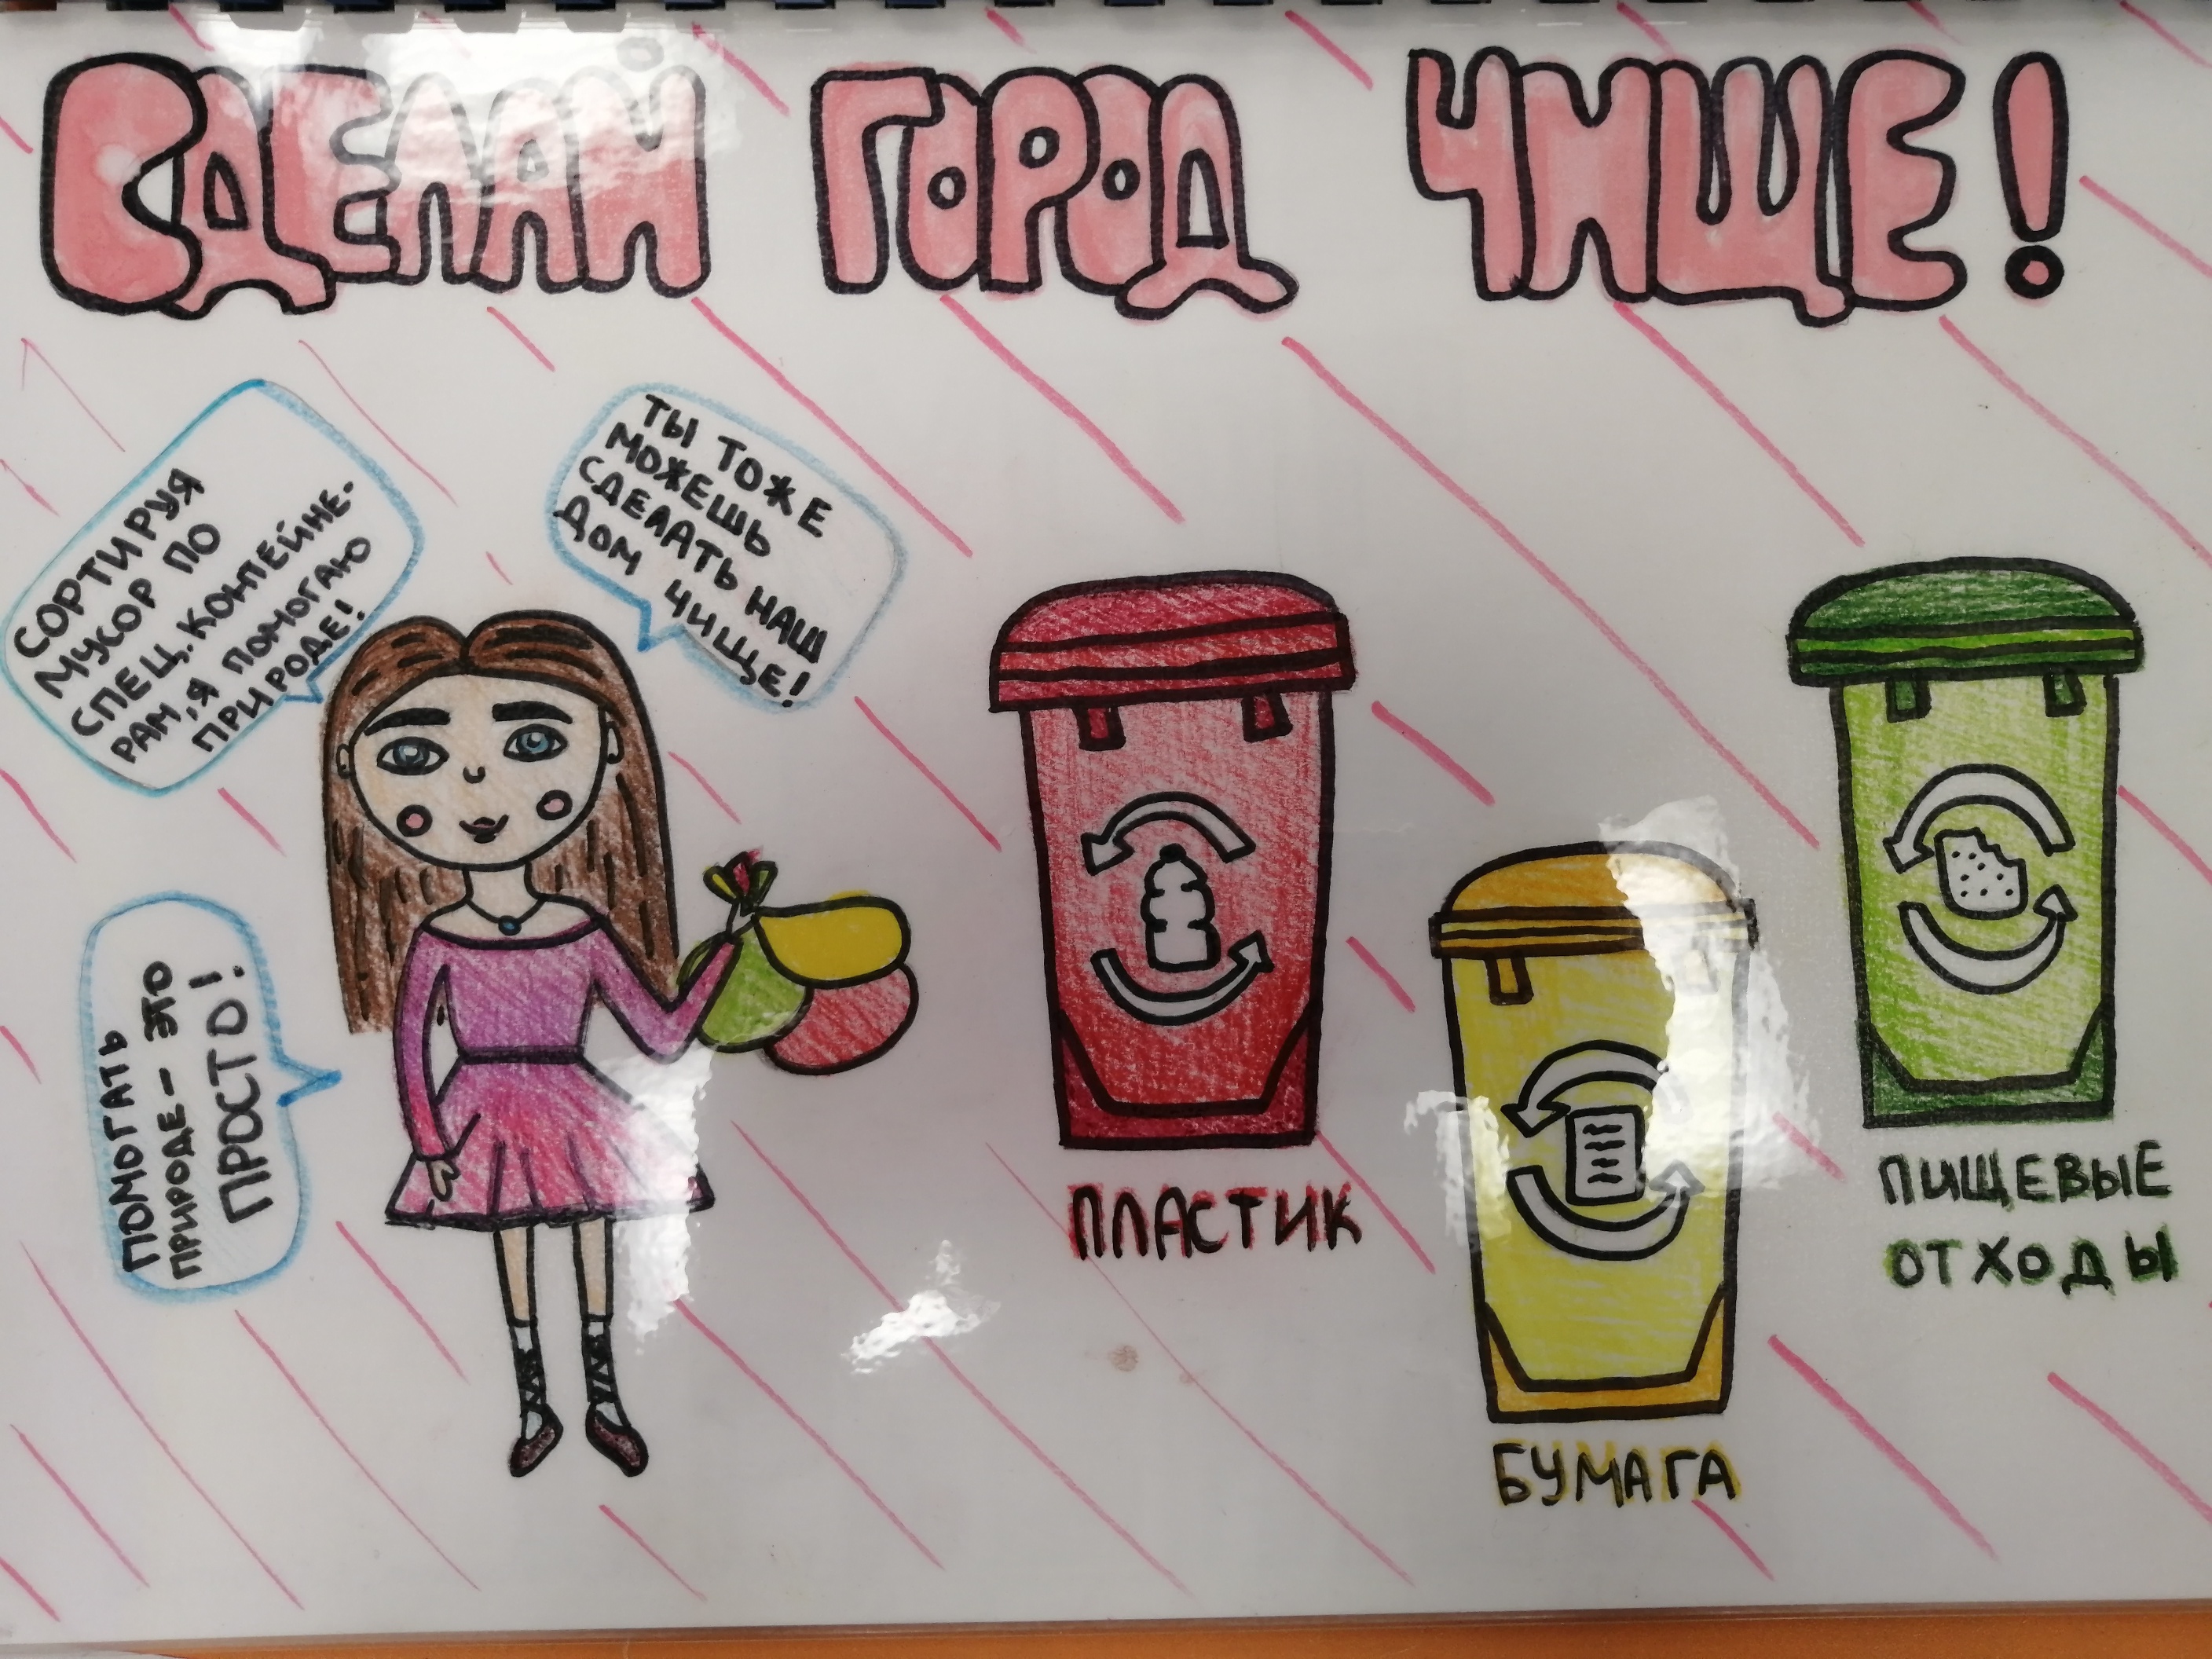 СДЕЛАЙ ГОРОД ЧИЩЕ!
СОРТИРУЯ
МУСОР ПО
СПЕЦ. КОНТЕЙНЕ-
РАМ, Я ПОМОГАЮ
ПРИРОДЕ!
ТЫ ТОЖЕ
МОЖЕШЬ
СДЕЛАТЬ НАШ
ДОМ ЧИЩЕ!
ПОМОГАТЬ
ПРИРОДЕ - ЭТО
ПРОСТО!
ПЛАСТИК
БУМАГА
ПИЩЕВЫЕ
ОТХОДЫ